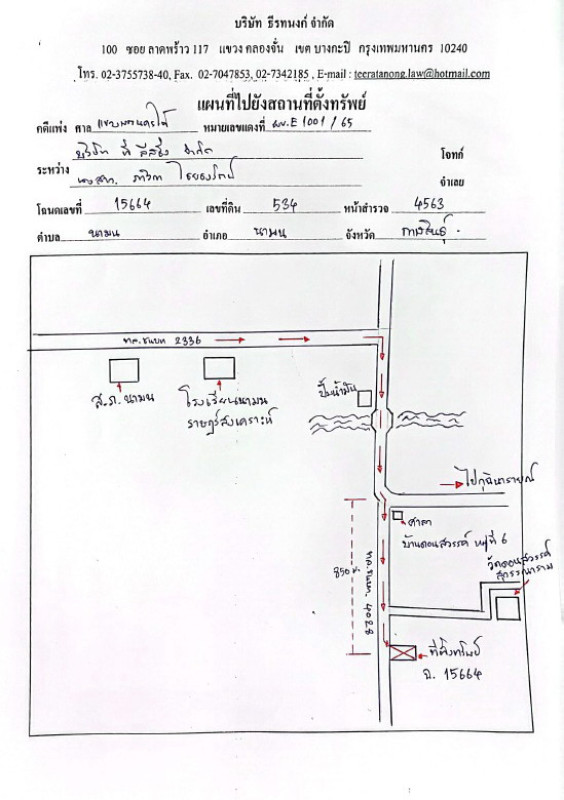 บริษัท ธีรทนงก์ จำกัด
100 ซอย ลาดพร้าว 117 แขวง คลองจั่น เขต บางกะปิ กรุงเทพมหานคร 10240
โทร. 02-3755738-40, Fax. 02-7047853, 02-7342185 , E-mail : teeratanong.law@hotmail.com
แผนที่ไปยังสถานที่ตั้งทรัพย์
คดีแพ่ง ศาล แขวงพระนครใต้ หมายเลขแดงที่ ผบ.E 1001 / 65
บริษัท ลีสซิ่ง จำกัด โจทก์
ระหว่าง
นางสาว จำเลย
โฉนดเลขที่ 15664 เลขที่ดิน 534 หน้าสำรวจ 4563
ตำบล นามน อำเภอ นามน จังหวัด กาฬสินธุ์
ทล.ชนบท 2336
ส.ภ. นามน
โรงเรียนนามน
ราษฎร์สงเคราะห์
ปั๊มน้ำมัน
ไปกุฉินารายณ์
ศาลา
บ้านดอนสวรรค์ หมู่ที่ 6
วัดดอนสวรรค์
สุวรรณาราม
850 ม.
ทล.ชนบท. 4028
ที่ตั้งทรัพย์
ฉ. 15664